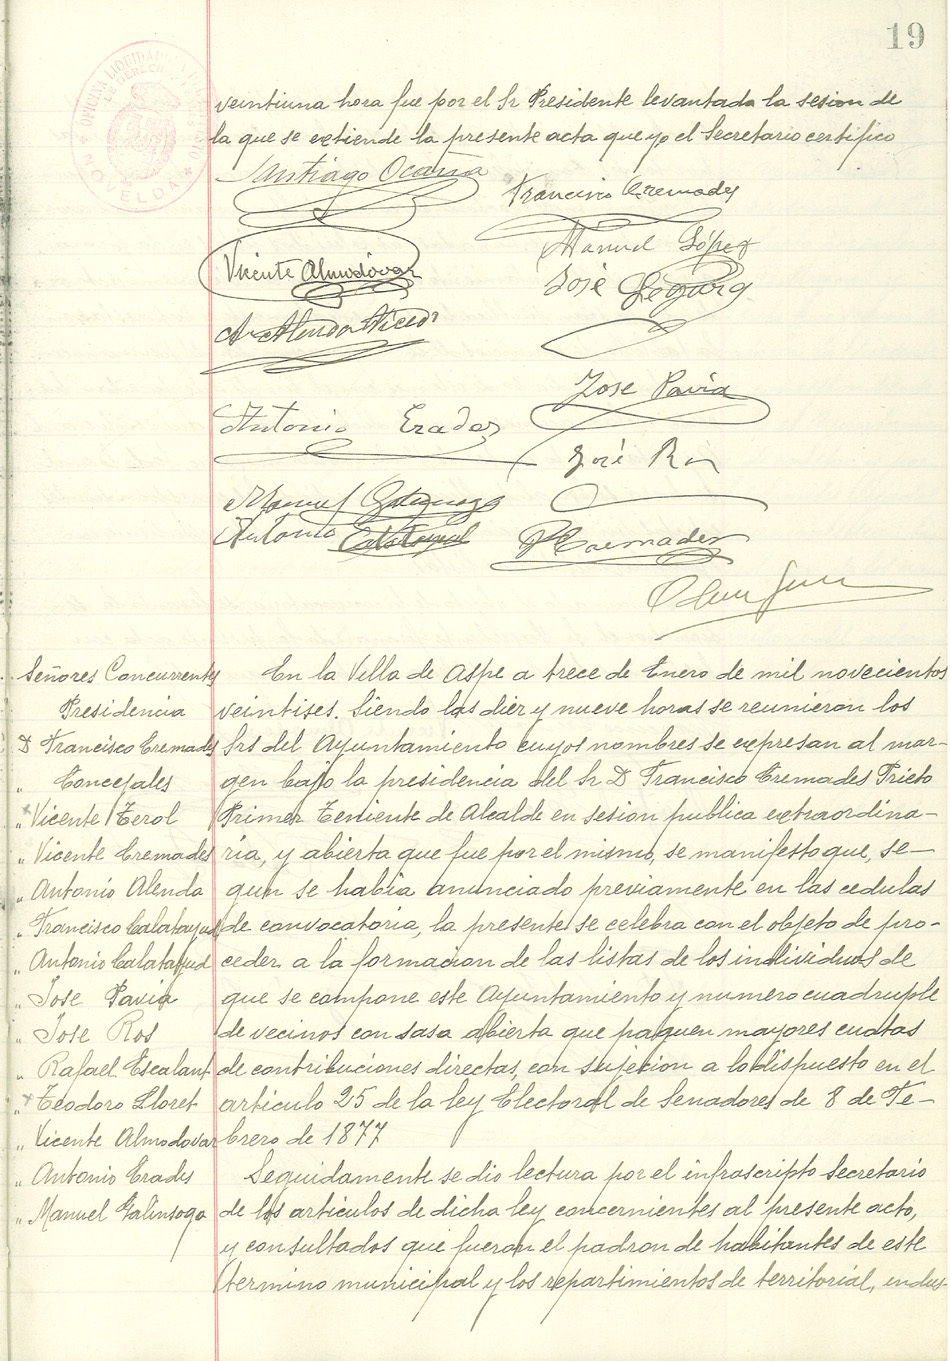 19
OFICINA LIQUIDADORA
NOVELDA
veintiuna hora fue por el Sr Presidente levantada la sesion de
la que se extiende la presente acta que yo el Secretario certifico
Santiago Ocaña
Francisco Cremades
Manuel López
Vicente Almodóvar
José
Jose Pavia
Antonio Erades
José Ros
Manuel
Antonio
Cremades
Señores Concurrentes
Presidencia
D Francisco Cremades
Concejales
" Vicente Terol
" Vicente Cremades
" Antonio Alenda
" Francisco Calatayud
" Antonio Calatayud
" Jose Pavia
" Jose Ros
" Rafael Escalant
" Teodoro Lloret
" Vicente Almodovar
" Antonio Erades
" Manuel Galinsoga
En la Villa de Aspe a trece de Enero de mil novecientos
veintises. Siendo las diez y nueve horas se reunieron los
Srs del Ayuntamiento cuyos nombres se expresan al mar-
gen bajo la presidencia del Sr D Francisco Cremades Prieto
Primer Teniente de Alcalde en sesion publica extraordina-
ria, y abierta que fue por el mismo, se manifesto que, se-
gun se habia anunciado previamente en las cedulas
de convocatoria, la presente se celebra con el objeto de pro-
ceder a la formacion de las listas de los individuos de
que se compone este Ayuntamiento y numero cuadruple
de vecinos con sasa abierta que paguen mayores cuotas
de contribuciones directas, con sujecion a lo dispuesto en el
articulo 25 de la ley Electoral de Senadores de 8 de Fe-
brero de 1877
Seguidamente se dio lectura por el infrascripto Secretario
de los articulos de dicha ley concernientes al presente acto,
y consultados que fueron el padron de habitantes de este
termino municipal y los repartimientos de territorial, indus-